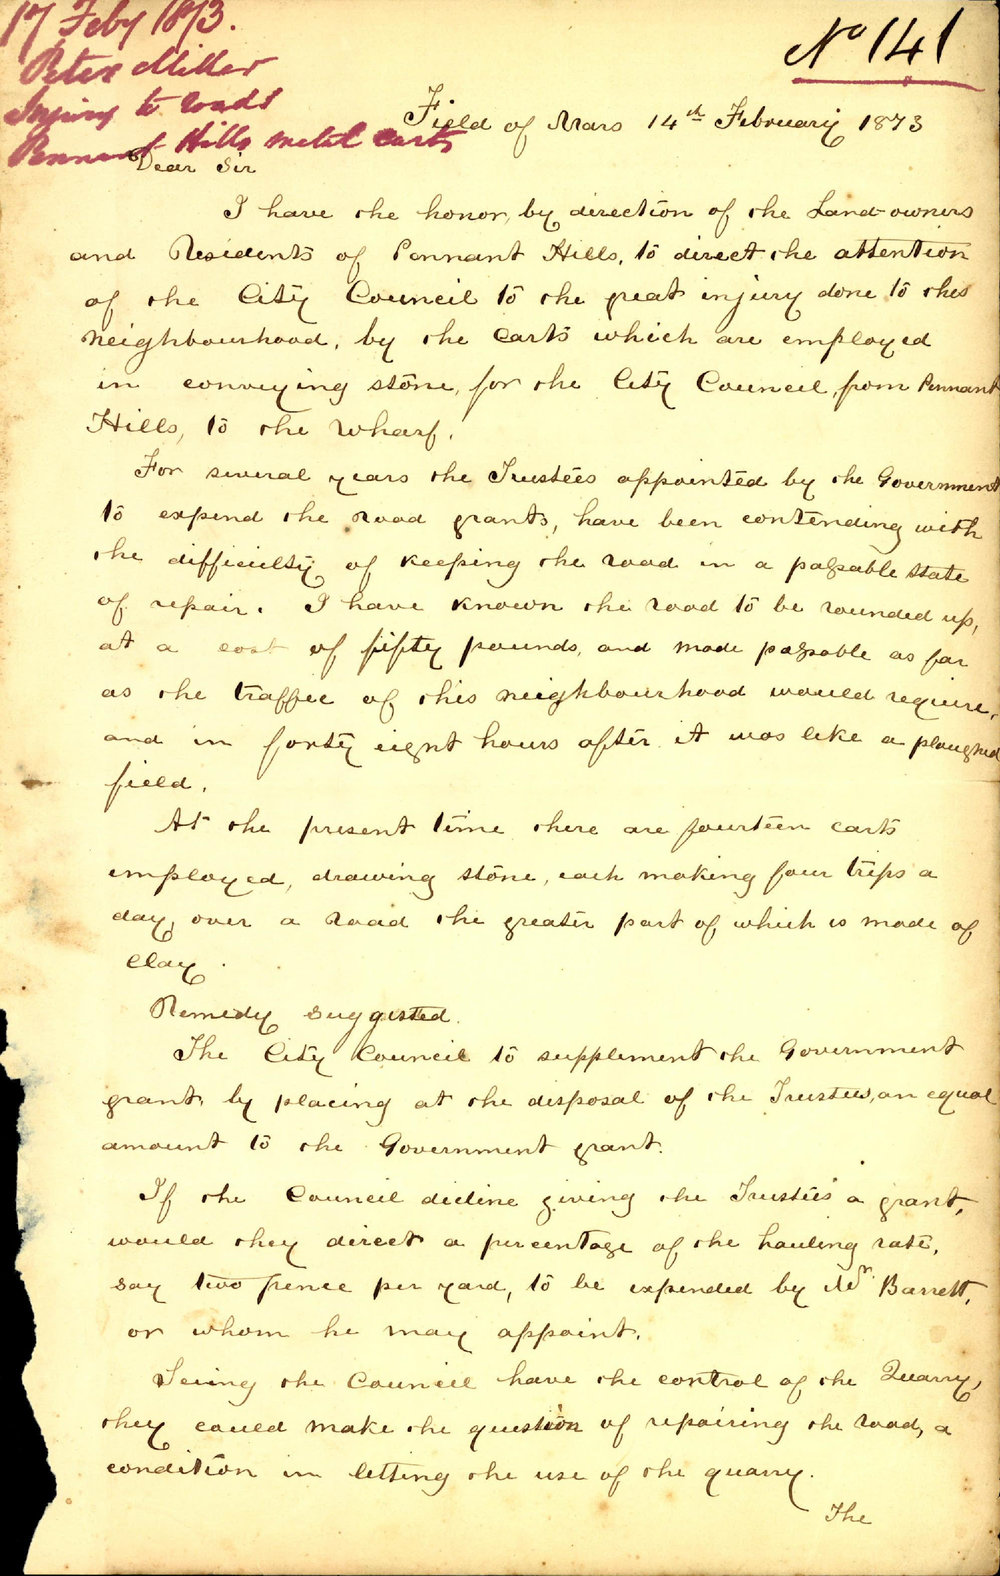 17 Feby 1873.
Peter Miller
Injury to roads
Pennant Hills metal carts
No 141
Field of Mars 14th February 1873
Dear Sir
I have the honor, by direction of the Land-owners
and Residents of Pennant Hills, to direct the attention
of the City Council to the great injury done to this
neighbourhood, by the carts which are employed
in conveying stone, for the City Council, from Pennant
Hills, to the wharf.
For several years the Trustees appointed by the Government
to expend the road grants, have been contending with
the difficulty of keeping the road in a passable state
of repair. I have known the road to be rounded up,
at a cost of fifty pounds, and made passable as far
as the traffic of this neighbourhood would require,
and in forty eight hours after it was like a ploughed
field.
At the present time there are fourteen carts
employed, drawing stone, each making four trips a
day, over a road the greater part of which is made of
clay.
Remedy suggested.
The City Council to supplement the Government
grant, by placing at the disposal of the Trustees, an equal
amount to the Government grant.
If the Council decline giving the Trustees a grant,
would they direct a percentage of the hauling rate,
say two pence per yard, to be expended by Mr. Barrett,
or whom he may appoint.
Seeing the Council have the control of the Quarry,
they could make the question of repairing the road, a
condition in letting the use of the quarry.
The